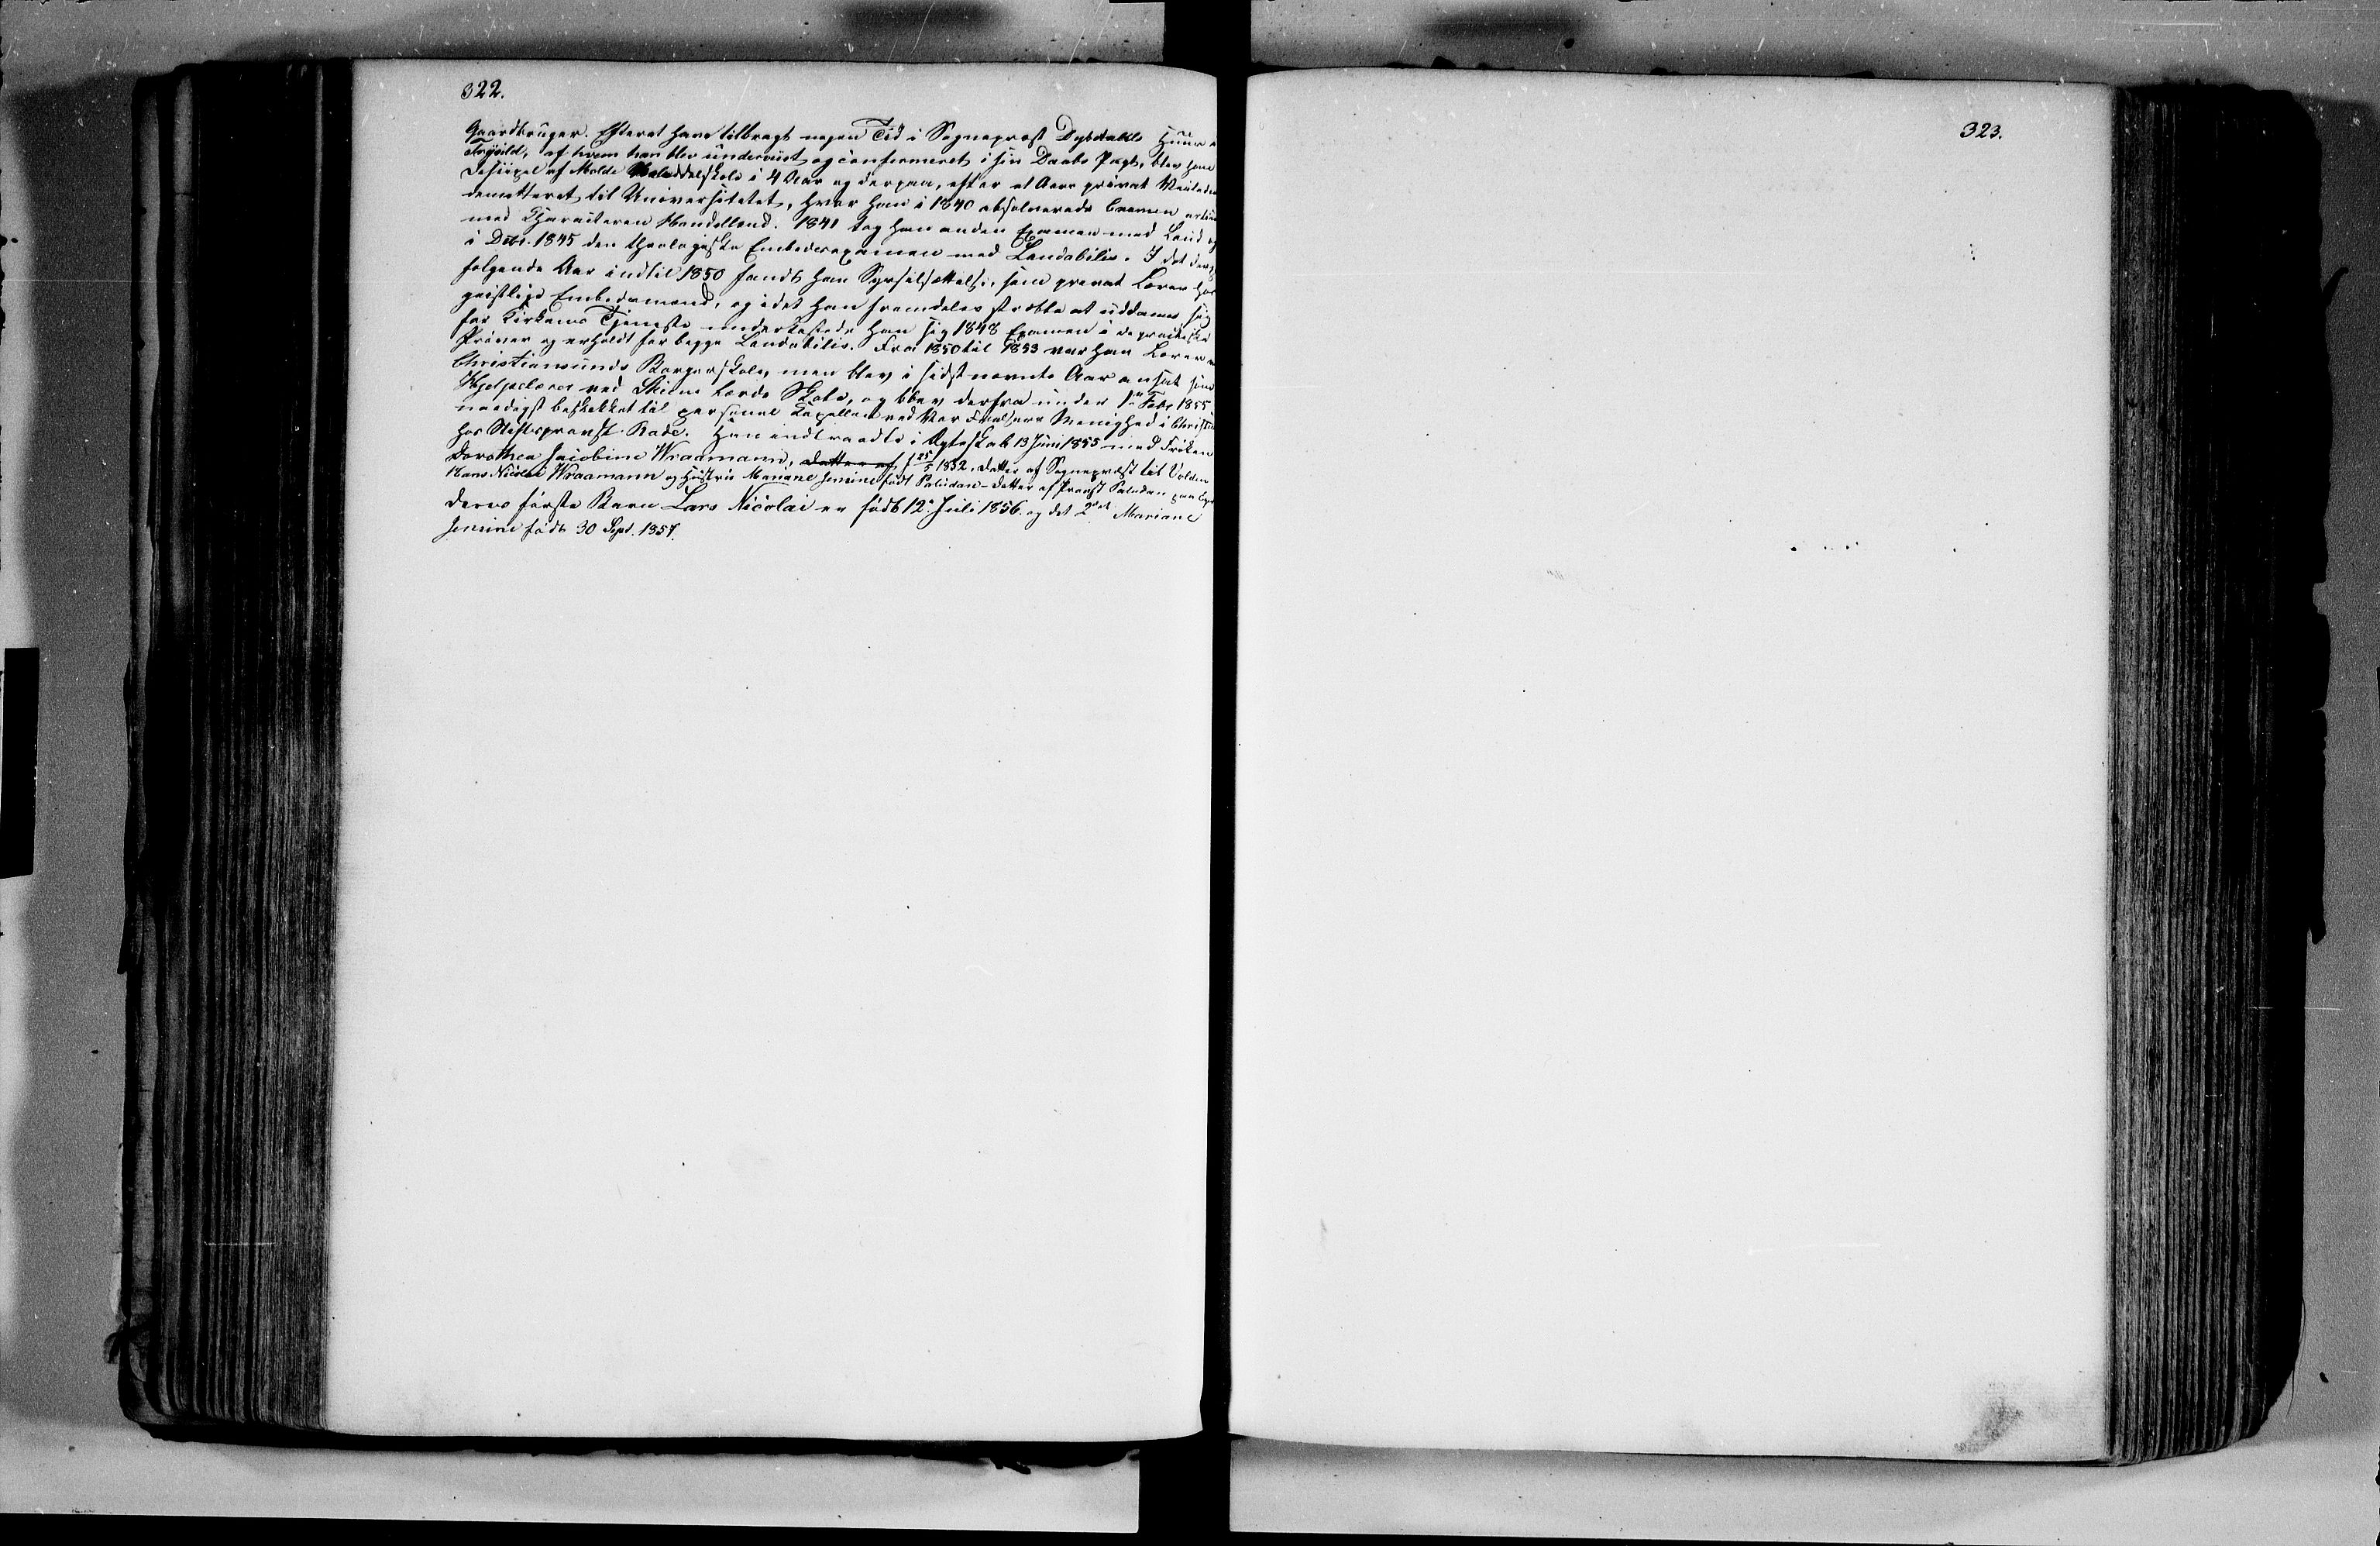 322.
Gaardbruger. Efterat have tilbragt nogen Tid i Sognepræst Dybdahls Huus i
Trysild, af hvem han blev underviist og confirmeret i sin Daabs Pagt, blev han
Discipel af Molde Middelskole i 4 Aar og derpaa, efter et Aars privat
demitteret til Universitetet, hvor han i 1840 absolverede Examen artium
med Charakteren Haud illaud. 1841 tog han anden Examen med Laud og
i Decbr. 1845 den theologiske Embedsexamen med Laudabilis. I det
følgende Aar indtil 1850 fandt han Sysselsættelse, som privat Lærer hos
geistlige Embedsmænd, og idet han fremdeles stræbte at uddanne sig
for Kirkens Tjeneste underkastede han sig 1848 Examen i de practiske
Prøver og erholdt for begge Laudabilis. Fra 1850 til 1853 var han Lærer
Christiansunds Borgerskole, men blev i sidstnævnte Aar ansat som
Hjelpelærer ved Skiens lærde Skole, og blev derfra under 1 Febr 1855
naadigst beskikket til personel Capellan ved Vor Frelsers Menighed i
hos Stiftsprovst Rode. Han indtraadte i Ægteskab 13 Juni 1855 med Frøken
Dorothea Jacobine Wraamann, Datter af f 25/5 1832, Datter af Sognepræst til Volden
Hans Nicolai Wraamann og Hustru Mariane Jensine født Paludan - Datter af Provst Paludan paa
Deres første Barn Lars Nicolai er født 12 Juli 1856. og det 2det Mariane
Jensine født 30 Sept. 1857.
323.